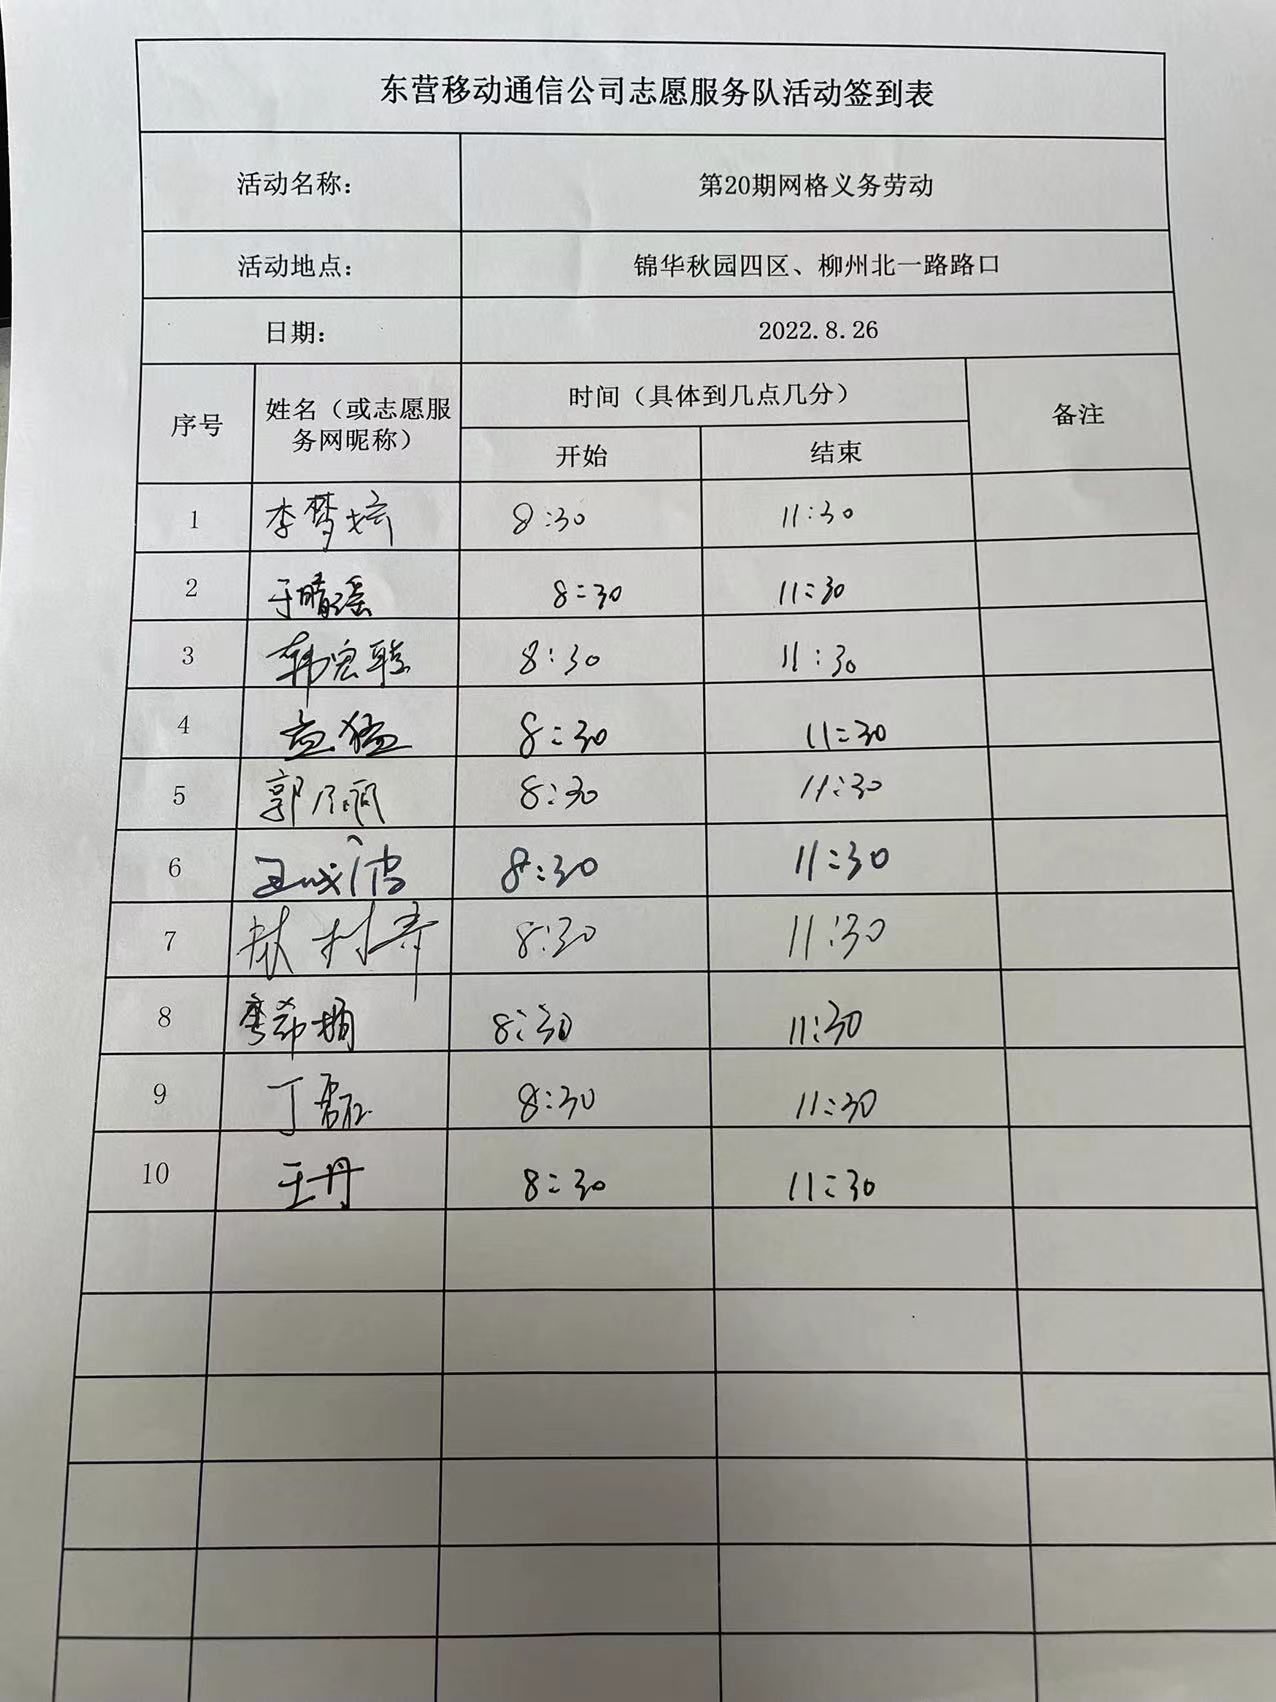 东营移动通信公司志愿服务队活动签到表
活动名称： 第20期网格义务劳动
活动地点： 锦华秋园四区、柳州北一路路口
日期： 2022.8.26
序号 姓名（或志愿服务网昵称） 时间（具体到几点几分） 备注
开始 结束
1 李梦 8:30 11:30
2 于晴瑶 8:30 11:30
3 韩 8:30 11:30
4 孟猛 8:30 11:30
5 郭 8:30 11:30
6 王 8:30 11:30
7 8:30 11:30
8 8:30 11:30
9 丁磊 8:30 11:30
10 王丹 8:30 11:30